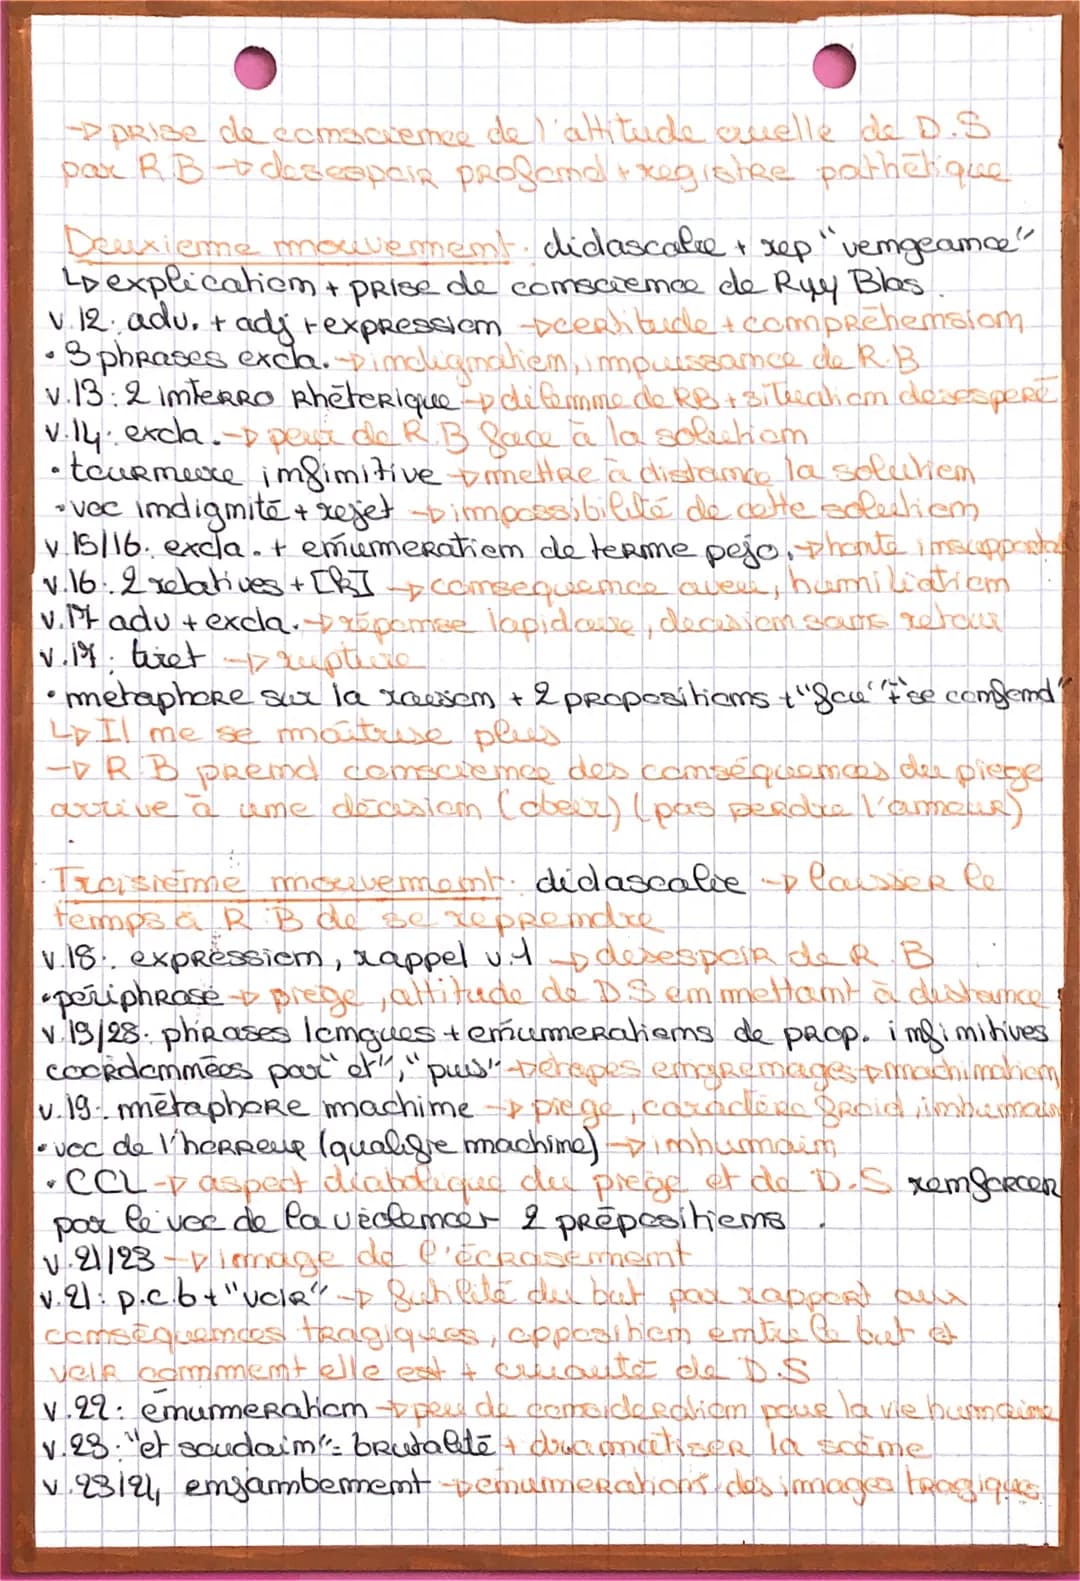 → prise de conscience de l'attitude cruelle de D.S
par R B → desespoir profond + registre pathētique
Deuxieme mouvement : didascalie + rep "vengeance"
↳ explication + prise de conscience de Ruy Blas.
v.12 : adv. + adj + expression → certitude + compréhension
• 3 phrases excla. → indignation, impuissance de R.B
v.13 : 2 interro rhétorique → dilemme de RB + situation desesperé
v.14 : excla. → peur de R.B face à la solution
• tournure infinitive → mettre à distance la solution
• voc indignité + rejet → impossibilité de cette solution
v.15/16 : excla. + énumeration de terme pejo. → honte insupportabl
v.16 : 2 relatives + [k] → consequence aveu, humiliation
v.17 adv + excla. → réponse lapidaire, decision sans retour
v.17 : tiret → rupture
• métaphore sur la raison + 2 propositions + "fou" + "se confond"
↳ Il ne se maitrise plus
→ R.B prend conscience des conséquences du piege
arrive à une décision (obeir) (pas perdre l'amour)
Troisième mouvement : didascalie → laisser le
temps à R.B de se reprendre
v.18 : expression, rappel v.1 → desespoir de R.B
• périphrase → piege, attitude de DS en mettant à distance
v.19/28 : phrases longues + énumerations de prop. infinitives
coordonnées par "et", "puis" → étapes engrenages → machination
v.19 : métaphore machine → piege, caractère froid, inhumain
• voc de l'horreur (qualifie machine) → inhumain
• CCL → aspect diabolique du piege et de D.S renforcer
par le voc de la violence + 2 prépositions.
v.21/23 → image de l'écrasement
v.21 : p.c.b + "voir" → futilité du but par rapport aux
conséquences tragiques, opposition entre le but et
voir comment elle est + cruauté de D.S
v.22 : énumeration → peu de consideration pour la vie humaine
v.23 : "et soudain" = brutalité + dramatiser la scène
v.23/24 enjambement → énumerations des images tragiques